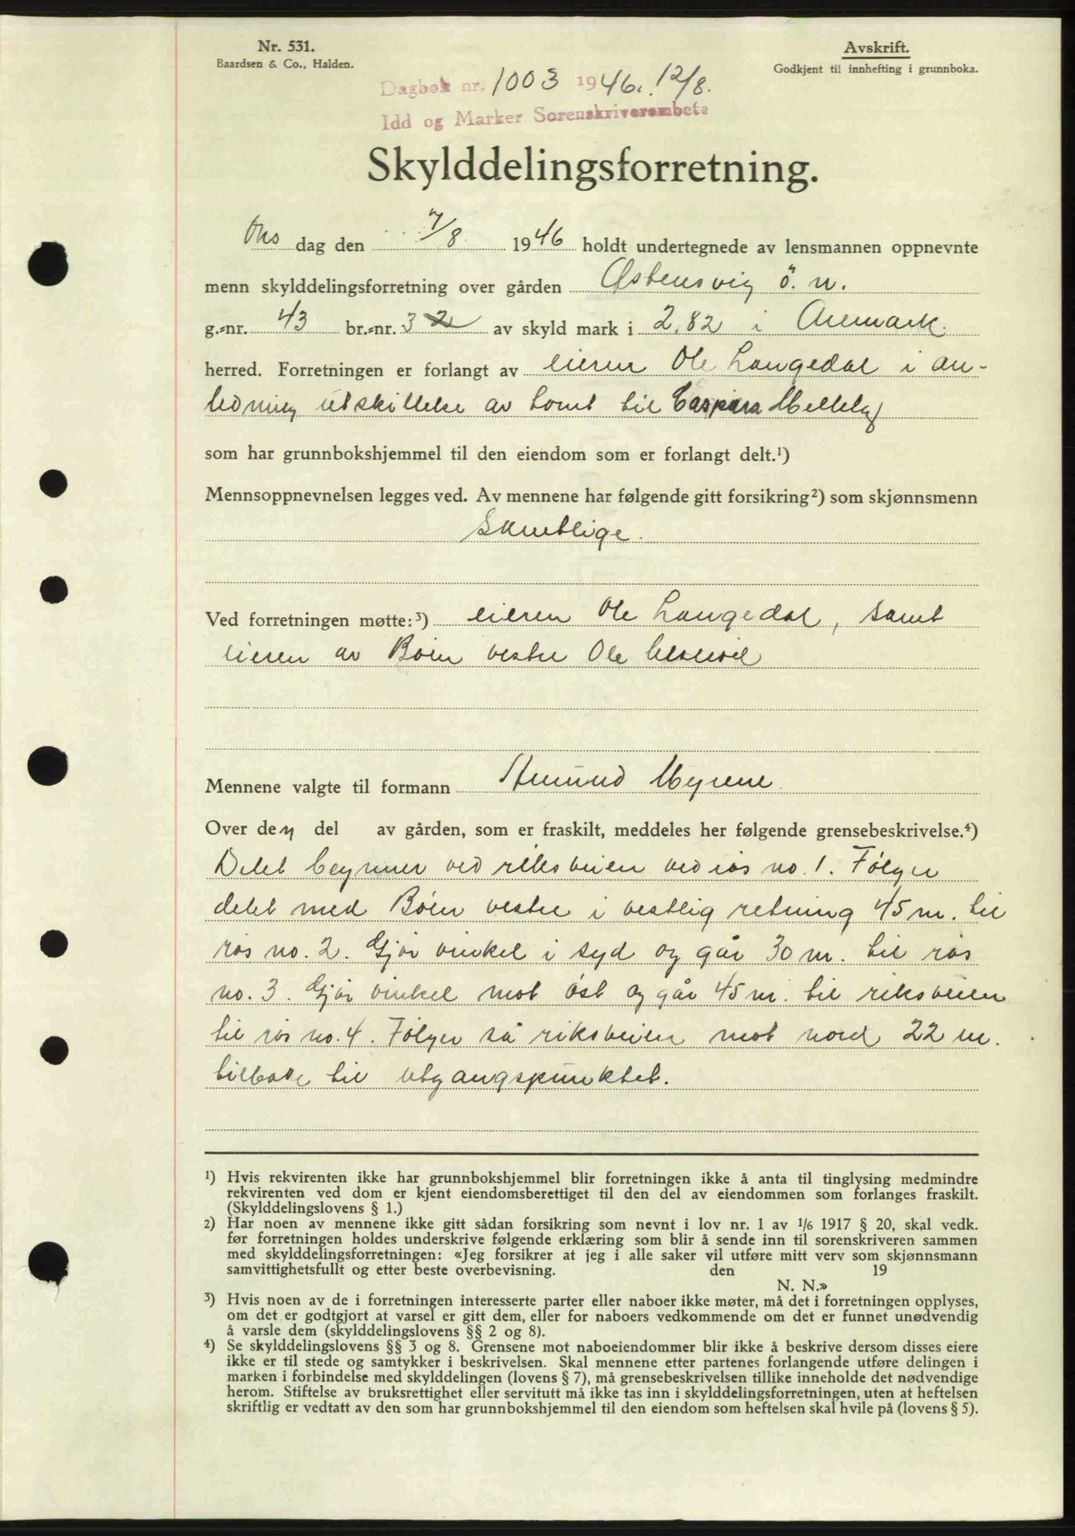 Nr. 531.
Baardsen & Co., Halden.
Avskrift.
Godkjent til innhefting i grunnboka.
Dagbok nr. 1003 1946. 12/8.
Idd og Marker Sorenskriverembete
Skylddelingsforretning.
Ons dag den 7/8 1946 holdt undertegnede av lensmannen oppnevnte
menn skylddelingsforretning over gården Østensvig ö. n.
g.-nr. 43 br.-nr. 3 av skyld mark i 2,82 i Aremark
herred. Forretningen er forlangt av eieren Ole Langedal i an-
ledning utskillelse av tomt til Caspara
som har grunnbokshjemmel til den eiendom som er forlangt delt.¹)
Mennsoppnevnelsen legges ved. Av mennene har følgende gitt forsikring²) som skjønnsmenn
Samtlige.
Ved forretningen møtte:³) eieren Ole Langedal, samt
eieren av Böen vestre Ole
Mennene valgte til formann Amund Myrene
Over den del av gården, som er fraskilt, meddeles her følgende grensebeskrivelse.⁴)
Delet begynner ved riksveien ved rös no. 1. Fölger
delet med Böen vestre i vestlig retning 45 m. til
rös no. 2. Gjör vinkel i syd og går 30 m. til rös
no. 3. Gjör vinkel mot öst og går 45 m. til riksveien
til rös no. 4. Fölger så riksveien mot nord 22 m.
tilbake til utgangspunktet.
¹) Hvis rekvirenten ikke har grunnbokshjemmel blir forretningen ikke å anta til tinglysing medmindre
rekvirenten ved dom er kjent eiendomsberettiget til den del av eiendommen som forlanges fraskilt.
(Skylddelingslovens § 1.)
²) Har noen av mennene ikke gitt sådan forsikring som nevnt i lov nr. 1 av 1/6 1917 § 20, skal vedk.
før forretningen holdes underskrive følgende erklæring som blir å sende inn til sorenskriveren sammen
med skylddelingsforretningen: «Jeg forsikrer at jeg i alle saker vil utføre mitt verv som skjønnsmann
samvittighetsfullt og etter beste overbevisning. den 19
N. N.»
³) Hvis noen av de i forretningen interesserte parter eller naboer ikke møter, må det i forretningen opplyses,
om det er godtgjort at varsel er gitt dem, eller for naboers vedkommende om det er funnet unødvendig
å varsle dem (skylddelingslovens §§ 2 og 8).
⁴) Se skylddelingslovens §§ 3 og 8. Grensene mot naboeiendommer blir ikke å beskrive dersom disses eiere
ikke er til stede og samtykker i beskrivelsen. Skal mennene etter partenes forlangende utføre delingen i
marken i forbindelse med skylddelingen (lovens § 7), må grensebeskrivelsen tillike inneholde det nødvendige
herom. Stiftelse av bruksrettighet eller servitutt må ikke tas inn i skylddelingsforretningen, uten at heftelsen
skriftlig er vedtatt av den som har grunnbokshjemmel til den eiendom som heftelsen skal hvile på (lovens § 5).